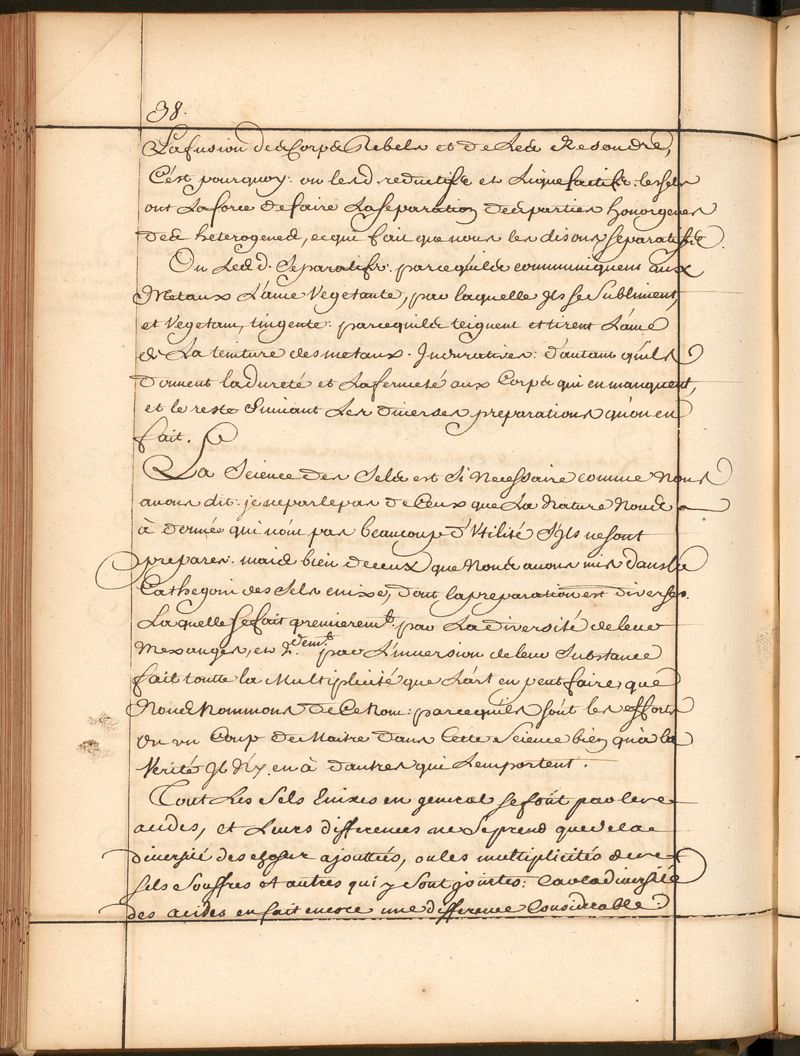 38.
La fusion des Corps Rebels et de Les Resoudre,
C'est pourquoy: on les d. reductifs et Liquefactifs: les sels
ont La force de faire La separation des parties homogenes
des heterogenes, ce qui fait que nous les disons separatifs.
On Les d. Separatifs: parce qu'ils communiquent aux
Metaux L'ame Vegetante, par laquelle Jls se Subliment,
et Vegetam, tingente: parcequ'ils teignent et tirent L'ame
& La teinture des metaux. Induratives: d'autant qu'ils
donnent la dureté et La fermeté aux Corps qui en manquent,
et le reste Suivant Les diverses preparations qu'on en
fait.
La Science des Sels est Si Necessaire comme Nous
avons dit: je ne parle pas de Ceux que La Nature Nous
à donné qui n'ont pas beaucoup d'Utilité S'Jls ne sont
preparez. mais bien de ceux que Nous avons mis dans la
Cathegorie des Sels enixe, dont la preparation est diverse.
Laquelle se fait premierem.t par La diversité de leur
Mexanges, et 2.dem.t par L'inversion de leur Substance
fait toutte la Multiplicité que L'art en peut faire, que
Nous Nommons de Ce Nom: parce qu'ils sont les efforts
ou un Coup de Maitre dans Cette Science bien qu'à la
Verité Jl n'y en à d'autres qui L'emportent.
Tout Les Sels Enixes en general se font par les
acides, et Leurs differences ne Se prend que de la
diversité des ajouttées, ou les multiplicités de
sels Souffres et autres qui y Sont jointes: Car la diversité
des acides en fait encore une difference Considerable.